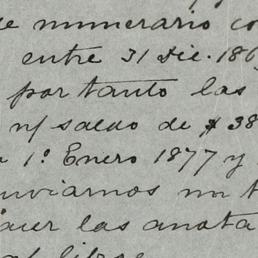 de numerario co
entre 31 Dic. 186
por tanto las
n/ saldo de $ 38
1º Enero 1877 y
enviarnos un t
hacer las anota